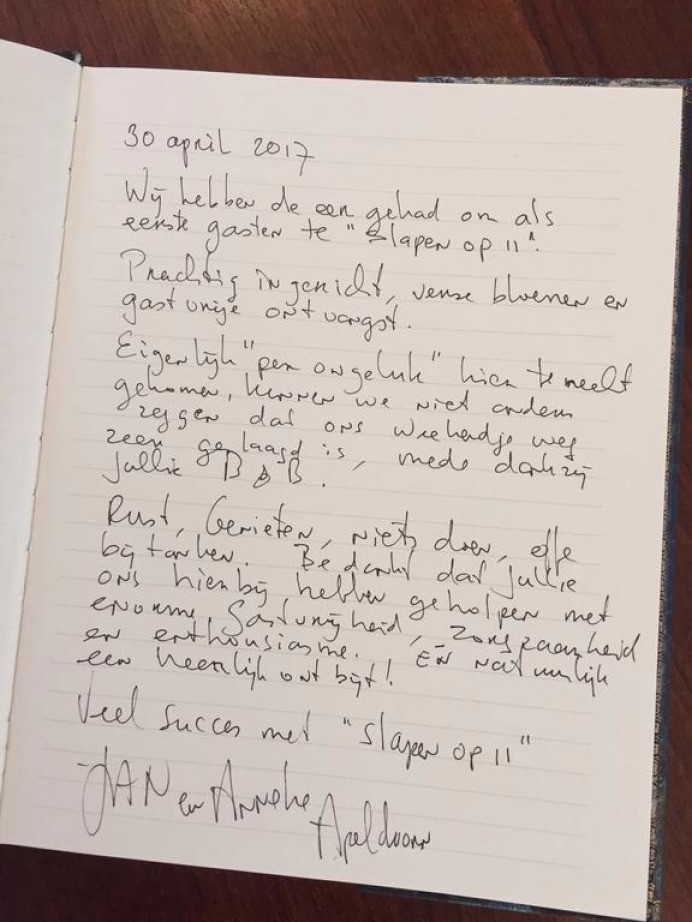 30 april 2017
Wij hebben de eer gehad om als
eerste gasten te "Slapen op 11".
Prachtig ingericht, verse bloemen en
gastvrije ontvangst.
Eigenlijk "per ongeluk" hier terecht
gekomen, kunnen we niet anders
zeggen dat ons weekendje weg
zeer geslaagd is, mede dankzij
jullie B&B.
Rust, Genieten, niets doen, effe
bijtanken. Bedankt dat jullie
ons hierbij hebben geholpen met
enorme Gastvrijheid, zorgzaamheid
en enthousiasme. EN natuurlijk
een heerlijk ontbijt!
Veel succes met "slapen op 11"
JAN en Anneke
Apeldoorn